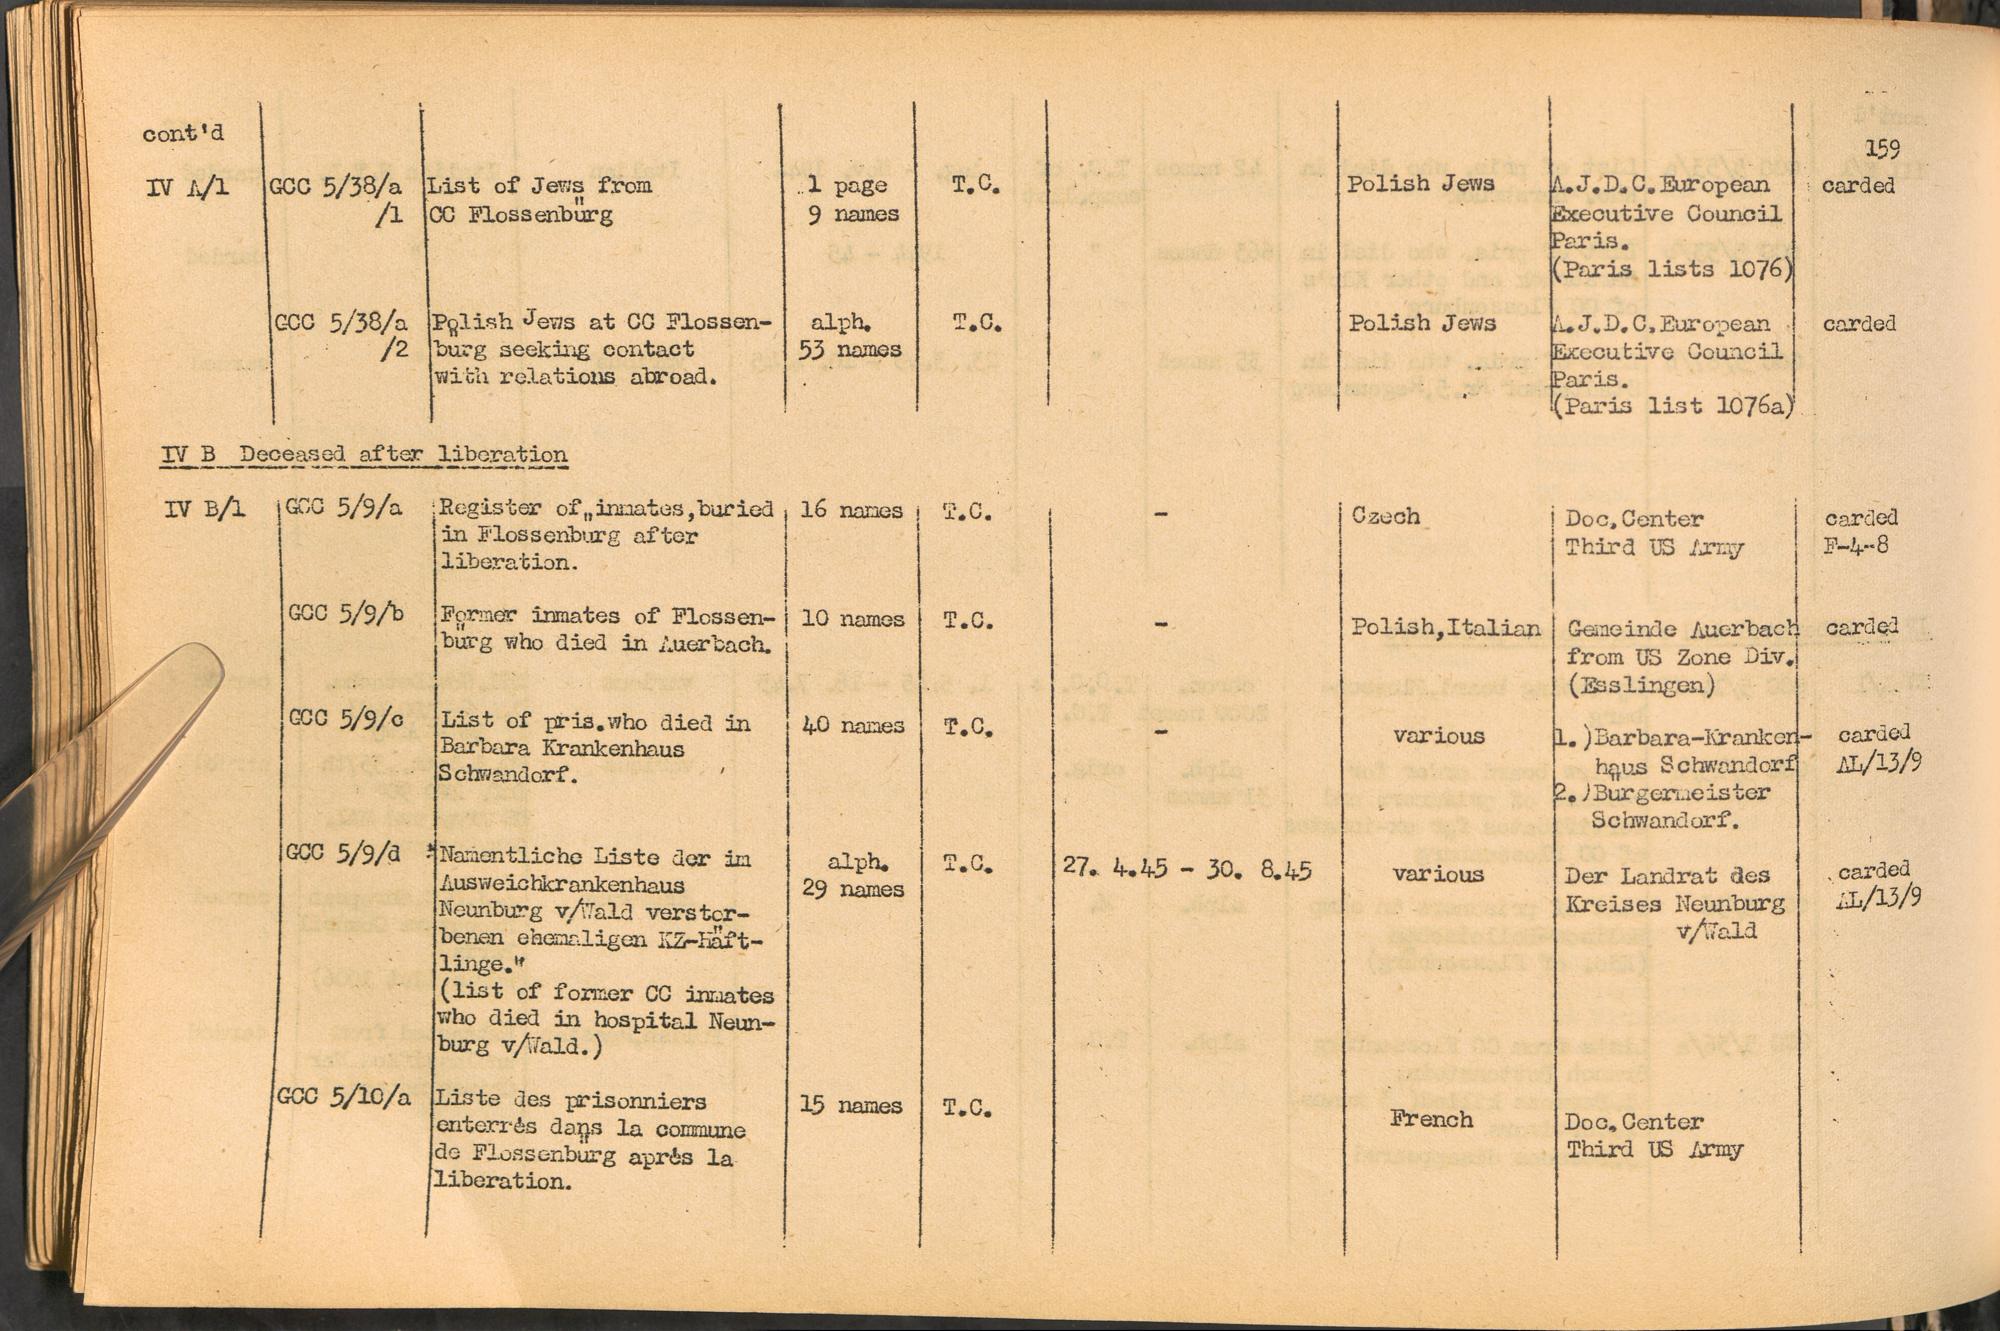 cont'd
159
IV A/1 GCC 5/38/a List of Jews from 1 page T.C. Polish Jews A.J.D.C.European carded
/1 CC Flossenbürg 9 names Executive Council
Paris.
(Paris lists 1076)
GCC 5/38/a Polish Jews at CC Flossen- alph. T.C. Polish Jews A.J.D.C.European carded
/2 bürg seeking contact 53 names Executive Council
with relations abroad. Paris.
(Paris list 1076a)
IV B Deceased after liberation
IV B/1 GCC 5/9/a Register of inmates,buried 16 names T.C. - Czech Doc.Center carded
in Flossenbürg after Third US Army F-4-8
liberation.
GCC 5/9/b Former inmates of Flossen- 10 names T.C. - Polish,Italian Gemeinde Auerbach carded
bürg who died in Auerbach. from US Zone Div.
(Esslingen)
GCC 5/9/c List of pris.who died in 40 names T.C. - various 1.)Barbara-Kranken- carded
Barbara Krankenhaus haus Schwandorf AL/13/9
Schwandorf. 2.)Bürgermeister
Schwandorf.
GCC 5/9/d "Namentliche Liste der im alph. T.C. 27. 4.45 - 30. 8.45 various Der Landrat des carded
Ausweichkrankenhaus 29 names Kreises Neunburg AL/13/9
Neunburg v/Wald verstor- v/Wald
benen ehemaligen KZ-Häft-
linge."
(list of former CC inmates
who died in hospital Neun-
burg v/Wald.)
GCC 5/10/a Liste des prisonniers 15 names T.C. French Doc.Center
enterrés dans la commune Third US Army
de Flossenbürg aprés la
liberation.